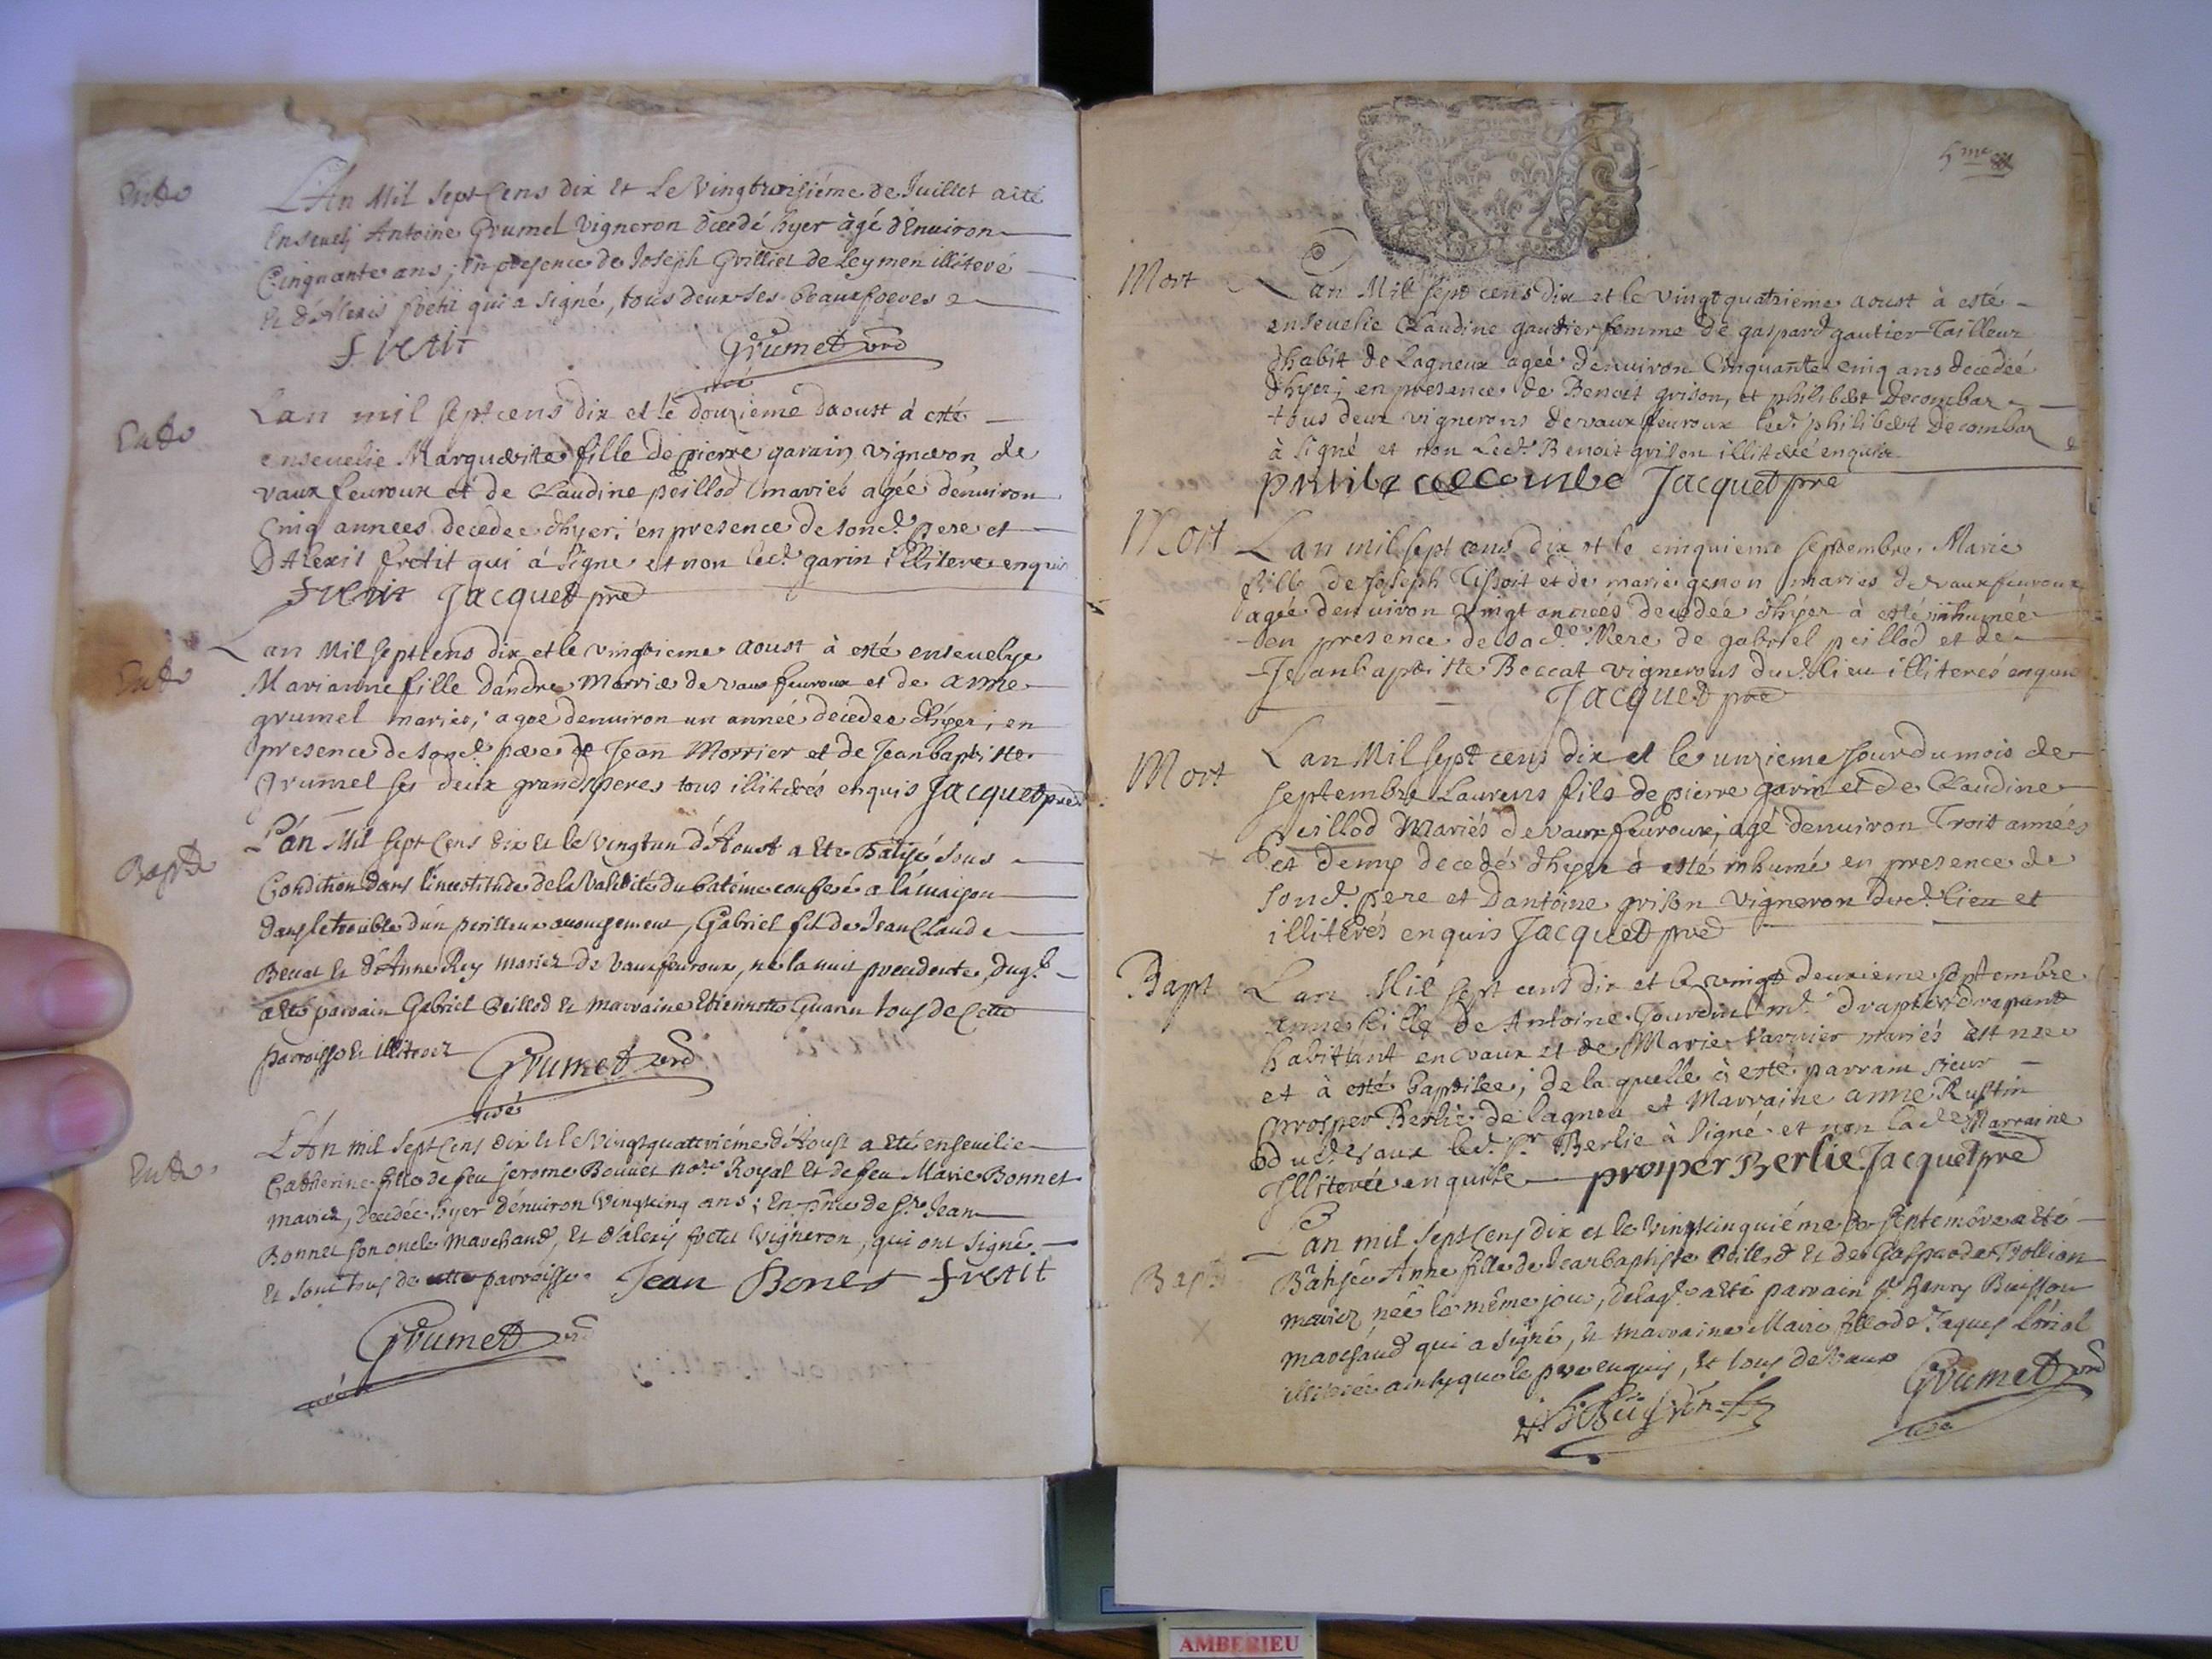 Ent.
L'An Mil Sept Cens dix et Le Vingtroisiéme de Juillet a été
Enseveli Antoine Grumel Vigneron decedé hyer agé d'Environ
Cinquante ans ; en presence de Joseph Grilliet de Leymen illiteré
et d'Alexis fretit qui a signé, tous deux ses beauxfreres
fretit Grumet
Ent.
Lan mil sept cens dix et le douzieme daoust à esté
ensevelie Marguerite fille de pierre garin vigneron de
vaux fevroux et de Claudine peillod mariés agée denviron
cinq années decedee dhyer, en presence de sond. pere et
DAlexis fretit qui à signe et non led. garin illitere enquis
fretit Jacquet pre
Ent.
Lan Mil sept cens dix et le vingtieme aoust à esté ensevelye
Marianne fille dandre Morrier de vaux fevroux et de anne
grumel mariés, agee denviron un année decedee dhyer, en
presence de sond. pere de Jean Morrier et de Jean baptiste
Grumel ses deux grandsperes tous illiterés enquis Jacquet pre
Bapt
L'an Mil sept Cens dix et le vingtun d'Aoust a ete Batisé sous
Condition dans l'incertitude de la Validité du batéme conferé a la maison
dans le trouble d'un perilleux accouchement, Gabriel fil de Jean Claude
Beccat et d'Anne Rey mariez de Vauxfevroux, né la nuit precedente, duq.l
a eté parrain Gabriel Peillod et marraine Etiennette Guarin tous de Cette
parroisse et illiterez Grumet
Ent.
L'An mil sept Cens dix et le Vingtquattriéme d'Aoust a eté ensevelie
Catherine fille de feu Jerome Bonnet no.re Royal et de feu Marie Bonnet
mariez, decedée hyer d'environ Vingtcinq ans ; En p.nce de s.r Jean
Bonnet son oncle Marchand, et d'alexis fretit Vigneron, qui ont signé
et sont tous de cette parroisse. Jean Bonet fretit
Grumet
5me
Mort
Lan Mil sept cens dix et le vingt quatrieme aoust à esté
ensevelie Claudine gautier femme de gaspard gautier Tailleur
dhabit de Lagneux agée denviron Cinquante cinq ans decedée
dhyer, en presence de Benoit grison, et philibert Decombaz
tous deux vignerons de vaux fevroux led. philibert Decombaz
à signé et non Led. Benoit grison illiteré enquis
Jacquet pre
Mort
Lan mil sept cens dix et le cinquieme septembre Marie
fille de Joseph Tissoit et de marie genon mariés de vauxfevroux
agée denviron vingt années decedée dhyer à esté inhumée
en presence de sad. Mere de gabriel peillod et de
Jeanbaptiste Beccat vignerons dud. lieu illiterés enquis
Jacquet pre
Mort
Lan Mil sept cens dix et le unzieme jour du mois de
septembre Laurens fils de pierre garin et de Claudine
peillod Mariés de vaux fevroux, agé denviron Trois années
et demy decedé dhyer à esté inhumé en presence de
sond. pere et Dantoine grison vigneron dud. lieu et
illiterés enquis Jacquet pre
Bapt
Lan Mil sept cens dix et le vingt deuxieme septembre
anne fille de Antoine Jourdin m.d drapier drapant
habittant en vaux et de Marie Varnier mariés est née
et à esté baptisée, de laquelle à esté parrain sieur
prosper Berlie de lagneu et Marraine anne Rustin
dud. vaux led. s.r Berlie à signé et non lad. Marraine
Jlliterée enquise prosper Berlie Jacquet pre
Bapt
Lan mil sept Cens dix et le Vingtcinquiéme de septembre a eté
Batisée Anne fille de Jeanbaptiste Peillod et de Gasparde Trollion
mariez, née le même jour, de laq.le a eté parrain s.r henry Buisson
marchand qui a signé, et marraine Marie fille de Jaques Loriol
illiterée ainsy que le pere enquis, et tous de Vaux Grumet
Buisson
AMBERIEU